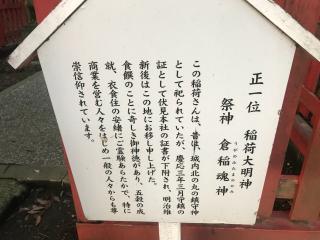 正一位　稲荷大明神
祭神　倉稲魂神
うがのみたまのかみ
この稲荷さんは、昔は、城内北の丸の鎮守神
として祀られていたが、慶応三年三月守鎮の
証として伏見本社の証書が下附され、明治維
新後はこの地にお移し申し上げた。
食饌のことに奇しき御神徳があり、五穀の成
就、衣食住の安緒にご霊験あらたかで、特に
商業を営む人々をはじめ一般の人々からも尊
崇信仰されています。